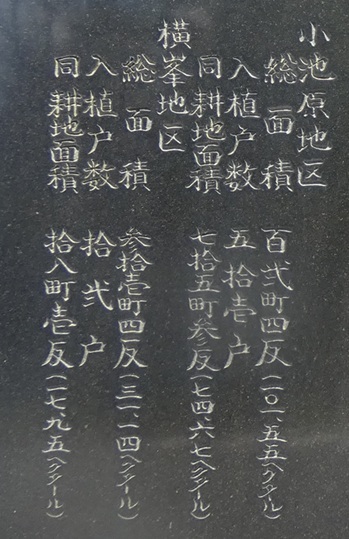 小池原地区
総面積 百弐町四反(一〇一、五五ヘクタール)
入植戸数 五拾壱戸
同耕地面積 七拾五町参反(七四、六七ヘクタール)
横峯地区
総面積 参拾壱町四反(三一、一四ヘクタール)
入植戸数 拾弐戸
同耕地面積 拾八町壱反(一七、九五ヘクタール)